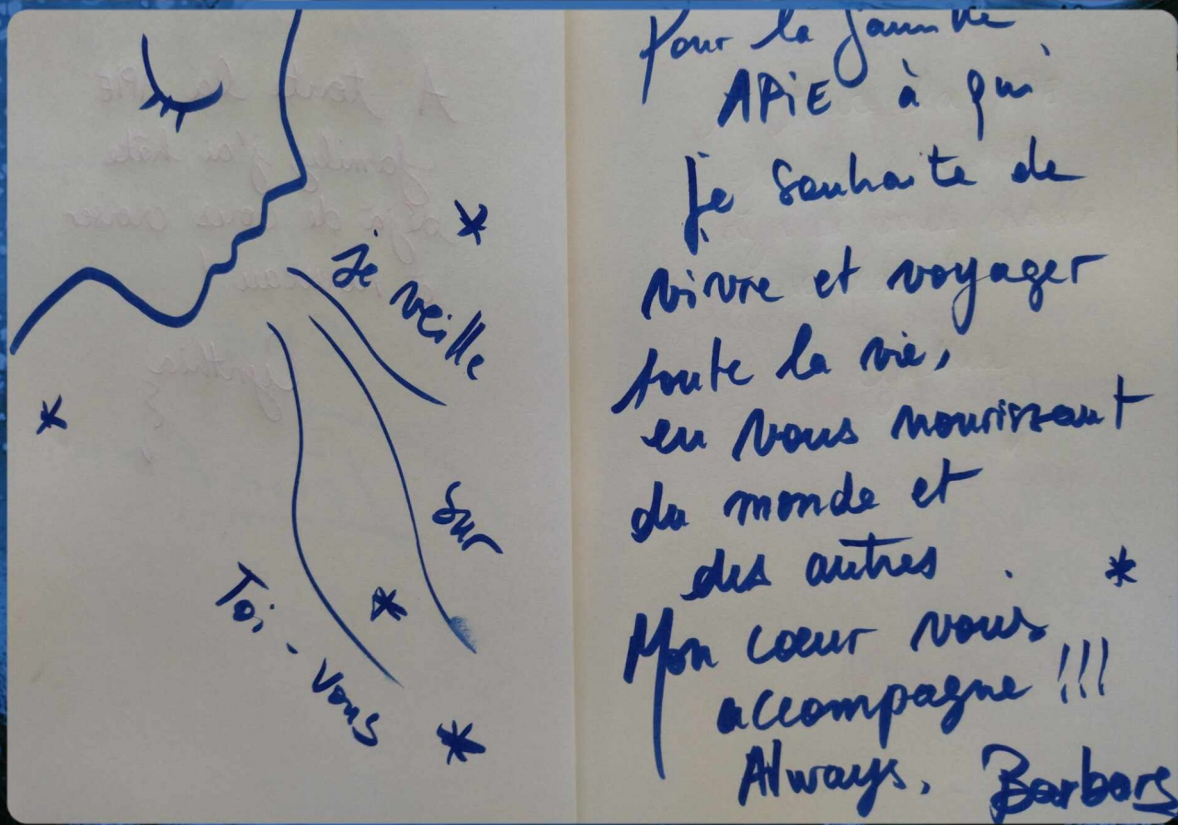 Je veille
sur
Toi - vous
Pour la famille
APiE à qui
je souhaite de
vivre et voyager
toute la vie,
en vous nourissant
du monde et
des autres.
Mon cœur vous
accompagne !!!
Always, Barbara